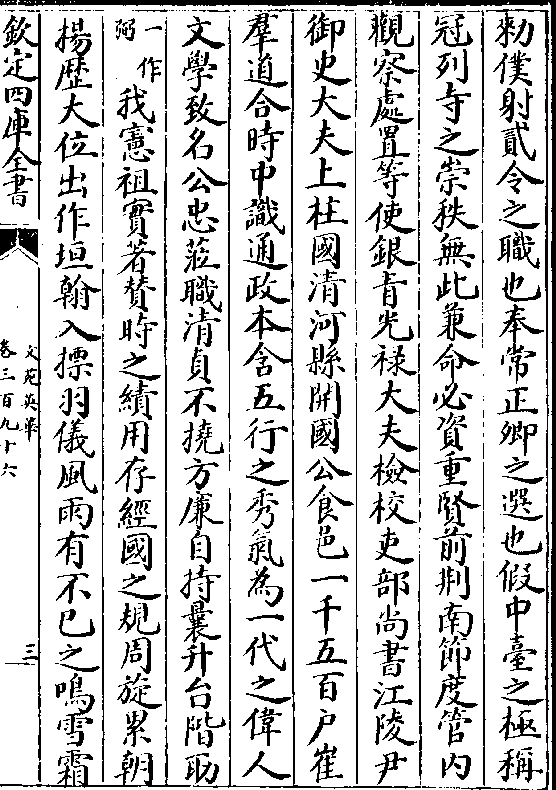 勑僕射貳令之職也奉常正卿之選也假中臺之極稱
冠列寺之崇秩無此兼命必資重賢前荆南節度管内
觀察處置等使銀青光禄大夫檢校吏部尚書江陵尹
御史大夫上柱國清河縣開國公食邑一千五百户崔
羣道合時中識通政本含五行之秀氣為一代之偉人
文學致名公忠蒞職清貞不撓方廉自持曩升台階助
一作弼我憲祖實著賛時之績用存經國之規周旋累朝
揚歴大位出作垣翰入摽羽儀風雨有不已之鳴雪霜
欽定四庫全書
文苑英華
卷三百九十六
三